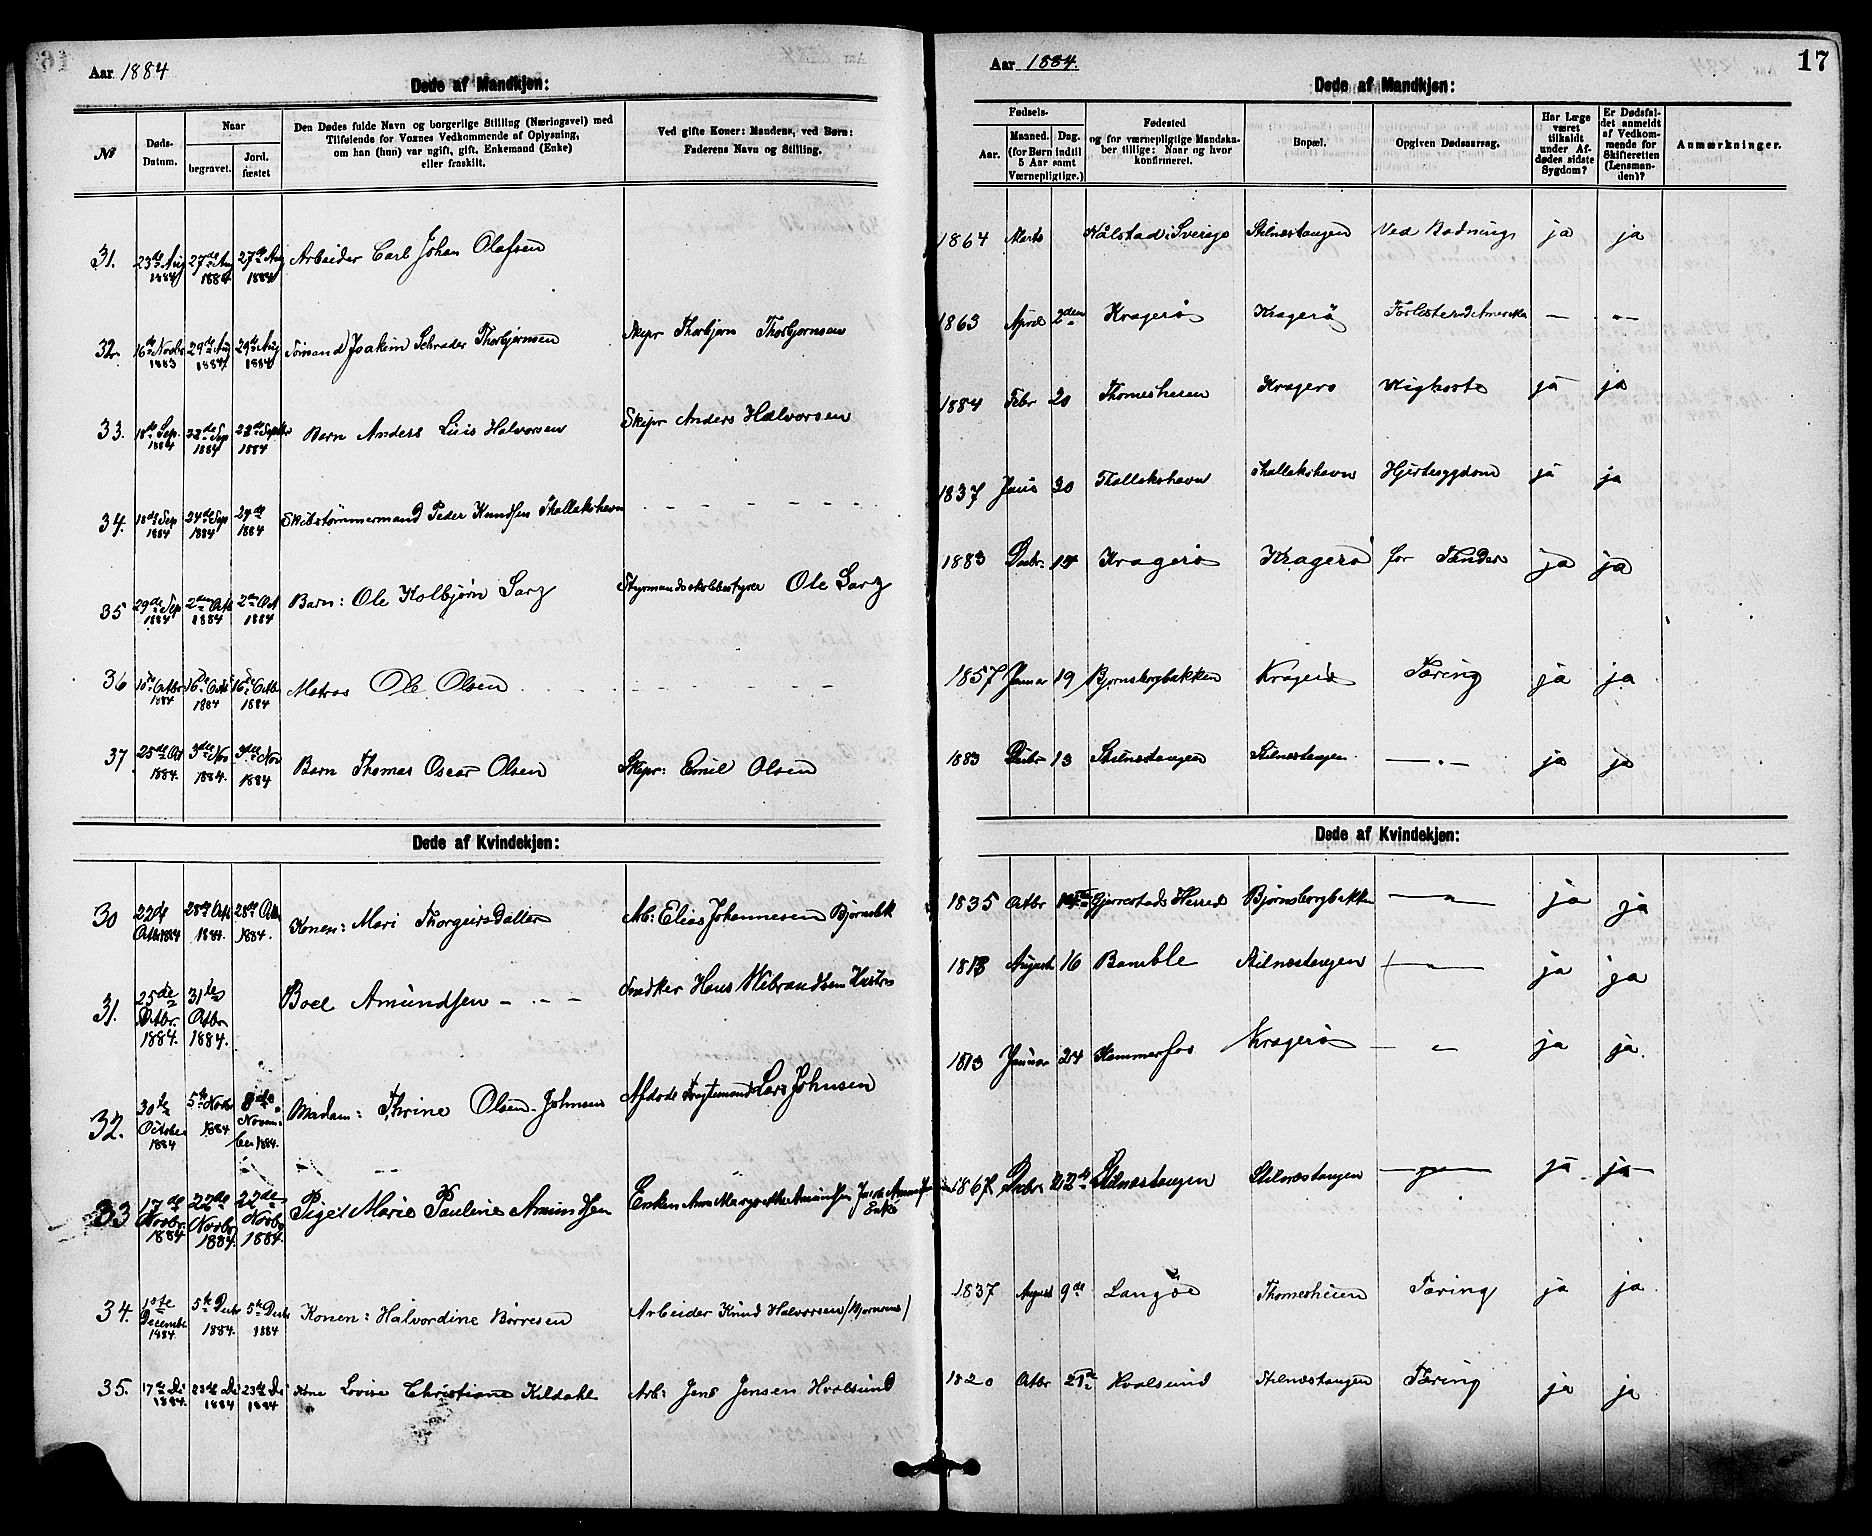 Aar 1884
Døde af Mandkjøn:
No
Døds-Datum.
Naar
begravet.
Jord. fæstet
Den Dødes fulde Navn og borgerlige Stilling (Næringsvei) med
Tilføiende for Voxnes Vedkommende af Oplysning,
om han (hun) var ugift, gift, Enkemand (Enke)
eller fraskilt.
Ved gifte Koner: Mandens, ved Børn:
Faderens Navn og Stilling.
31. 23de Aug 1884 27de Aug 1884 27de Aug 1884 Arbeider Carl Johan Olafsen
32. 16de Novbr 1883 29de Aug 1884 29de Aug 1884 Sömand Joakim Schrader Thorbjörnsen Skipr Thorbjørn Thorbjørnsen
33. 18de Sep. 1884 23de Sep 1884 23de Septbr 1884 Barn Anders Luis Halvorsen Skipr Anders Halvorsen
34. 18de Sep 1884 24de Sep 1884 24de 1884 Skibstømmermand Peder Knudsen Thallakshavn - - - - - -
35 29de Sep 1884 2den Octb 1884 2den Oct 1884 Barn: Ole Kolbjørn Larz Styrmandsskolebestyrer Ole Larz
36 10de Octbr 1884 16de Octb 1884 16de Octb. 1884 Matros Ole Olsen - - - - - -
37 25de Oct 1884. 3die Nov 1884. 3die Nov 1884 Barn Thomas Oscar Olsen Skipr: Emil Olsen
Døde af Kvindekjøn:
30 22de Octbr 1884 28de Octb 1884. 28de Octb 1884. Konen: Mari Thorgeirsdatter Arb: Elias Johannesen Bjørnsbk
31. 25de Octbr. 1884. 31te Octbr 1884. Boel Amundsen - . - - Snedker Hans Wibrandsens Hustru
32. 30te October 1884 5te Novbr 1884 8de November 1884. Madam: Thrine Olsen-Johnsen Afdøde Lars Johnsen
33 17de Novbr. 1884 22de Novbr 1884. 22de Novbr 1884. Pige: Marie Pauline Amundsen Enken Ane Margrethe Amundsen Enke
34. 1ste December 1884 5te Decbr 1884. 5te Decbr 1884 Konen: Halvordine Børresen Arbeider Knud Halvorsen
35. 17de De 1884. 23de De 1884 23de De 1884 Kone Lovise Christiane Kildahl Arb: Jens Jensen Hvalsund
Aar 1884.
17
Døde af Mandkjøn:
Fødsels-
Aar.
Maaned. Dag.
(for Børn indtil
5 Aar samt
Værnepligtige.)
Fødested
og for værnepligtige Mandska-
ber tillige: Naar og hvor
konfirmeret.
Bopæl.
Opgiven Dødsaarsag.
Har Læge
været
tilkaldt
under Af-
dødes sidste
Sygdom?
Er Dødsfal-
det anmeldt
af Vedkom-
mende for
Skifteretten
(Lensman-
den)?
Anmærkninger.
1864 Marts Kålstad i Sverige Stilnæstangen Ved Badning ja ja
1863 April 2den Kragerø Kragerø - -
1884 Febr 20 Thomesheien Kragerø Kighoste ja ja
1837 Juni 30 Thallakshavn Thallakshavn Hjertesygdom ja ja
1883 Decbr. 14 Kragerø Kragerø for Tænder ja ja
1857 Januar 19 Bjørnsborgbakken Kragerø Tæring ja ja
1883 Decbr 13 Stilnæstangen Stilnæstangen —.— ja ja
Døde af Kvindekjøn:
1835 Octbr Gjerrestads Herred Bjørnsborgbakken —"— ja ja
1818 August 16 Bamble Stilnæstangen —"— ja ja
1813 Januar 24 Hammerfos Kragerø —"— ja ja.
1867 Decbr 22de Stilnæstangen Stilnæstangen —"— ja ja
1837 August 9de Langöe Thomesheien Tæring ja ja
1820 Octbr 21de Hvalsund Stilnæstangen Tæring ja ja